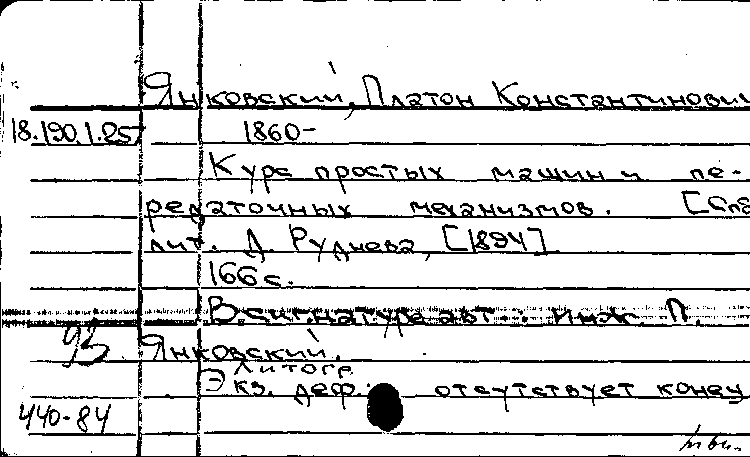 Янковский, Платон Константинович
18.190.1.25 1860-
Курс простых машин и пе-
редаточных механизмов. [Спб
лит. Д. Руднева, [1894]
166 с.
В сигнатуре авт.: инж. П.
93 Янковский.
Литогр.
Экз. деф.: отсутствует конец
440-84